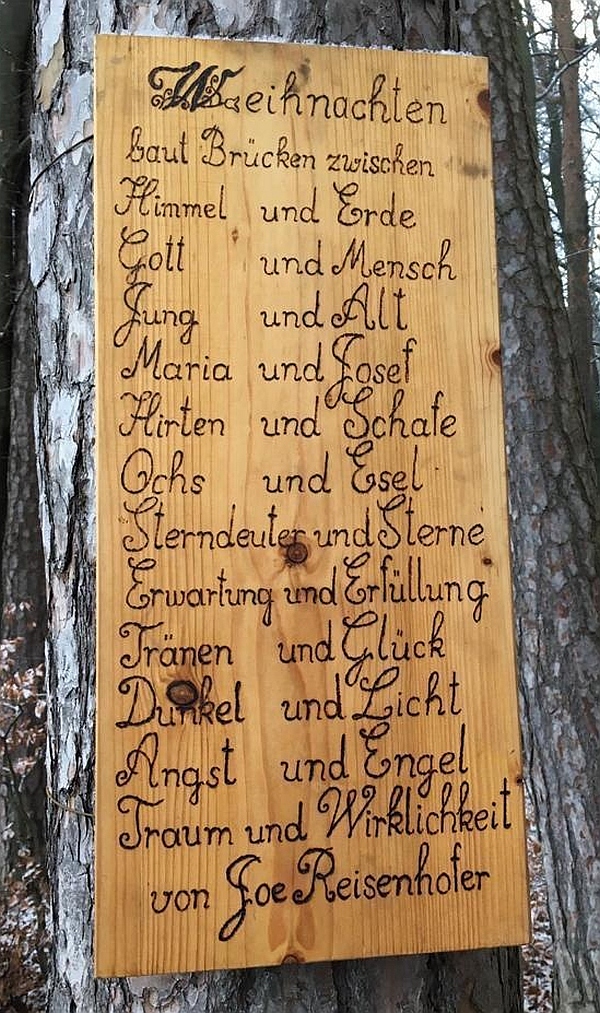 Weihnachten
baut Brücken zwischen
Himmel und Erde
Gott und Mensch
Jung und Alt
Maria und Josef
Hirten und Schafe
Ochs und Esel
Sterndeuter und Sterne
Erwartung und Erfüllung
Tränen und Glück
Dunkel und Licht
Angst und Engel
Traum und Wirklichkeit
von Joe Reisenhofer